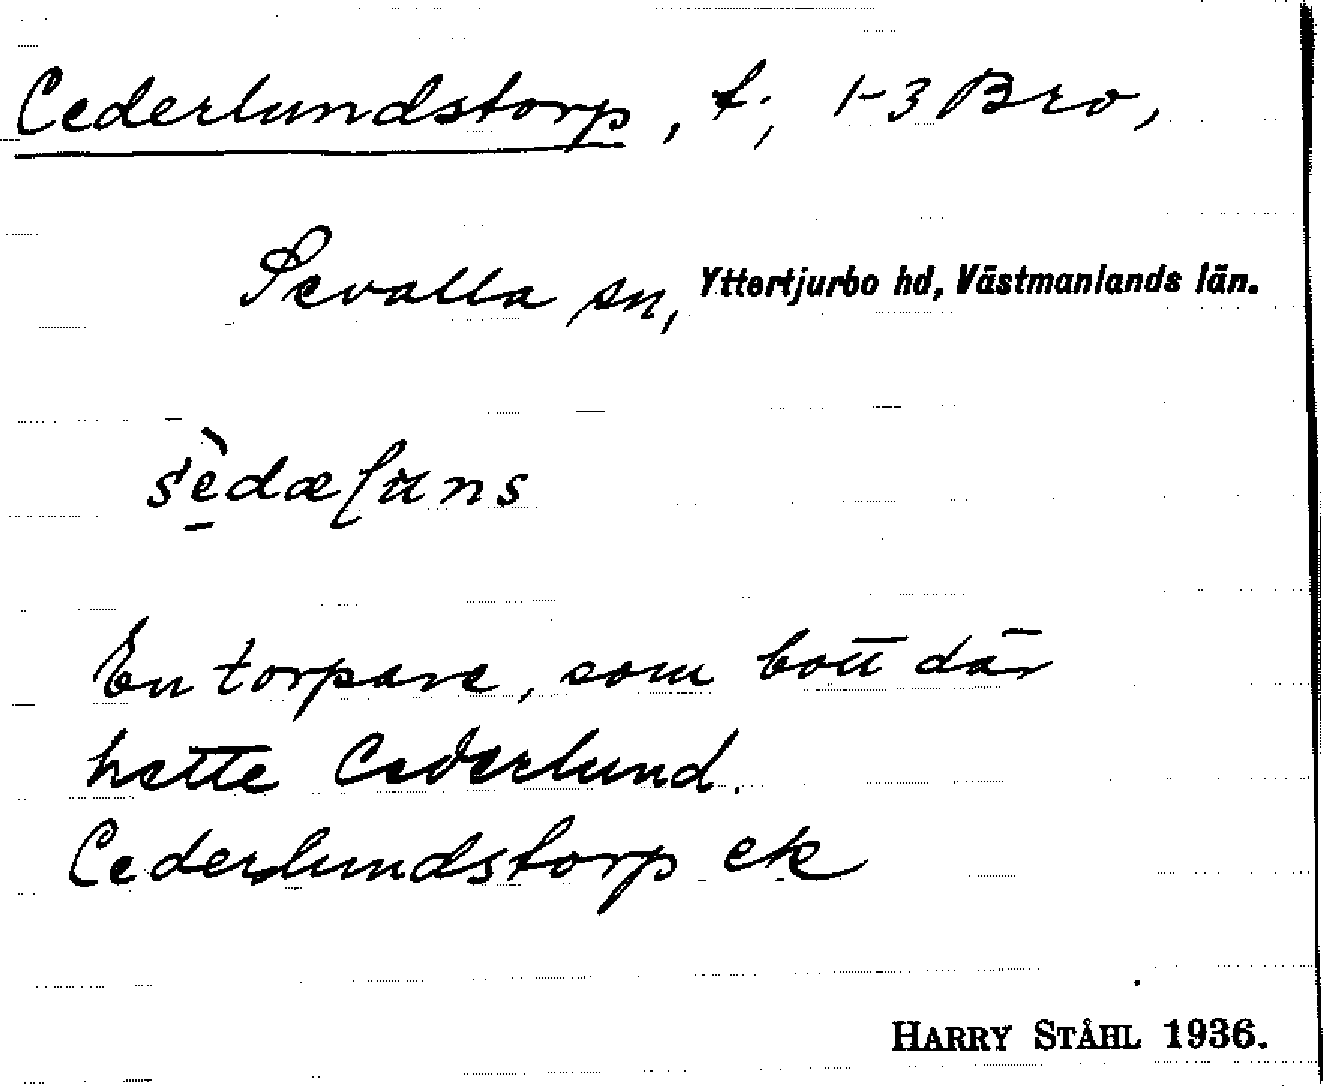 Cederlundstorp, t., 1-3 Bro,
Sevalla sn, Yttertjurbo hd, Västmanlands län.
En torpare, som bott där
hette Cederlund.
Cederlundstorp ek
HARRY STÅHL 1936.